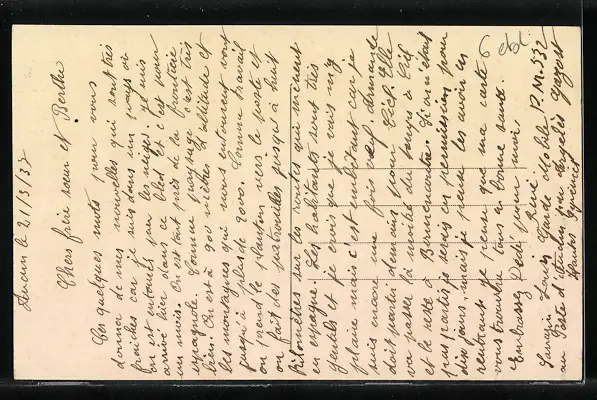 Aucun le 21/3/37
Chers frère sœur et Berthe
Ces quelques mots pour vous
donner de mes nouvelles qui sont très
fraîches car je suis dans un pays où
on est entouré par les neiges. Je suis
arrivé hier dans ce bled et c'est pour
un mois. On est tout près de la frontière
espagnole. Comme paysage c'est très
bien. On est à 900 mètres d'altitude et
les montagnes qui nous entourent vont
jusqu'à plus de 2000. Comme travail
on prend le planton vers le poste et
on fait des patrouilles jusqu'à huit
kilomètres sur les routes qui mènent
en espagne. Les habitants sont très
gentils et je crois que je vais m'y
plaire mais c'est embêtant car je
suis encore une fois
doit partir demain pour Vief. Elle
va passer la moitié du temps à Vief
et le reste à Bonnencontre. Si on n'était
pas parti je serais en permission pour
dix jours, mais je pense les avoir en
rentrant. Je pense que ma carte
vous trouvera tous en bonne santé.
Embrassez Dédé pour moi,
René
Louis Garde Mobile P.M. 532
au Poste d'Aucun par Argelès Gazost
Hautes Pyrénées
6